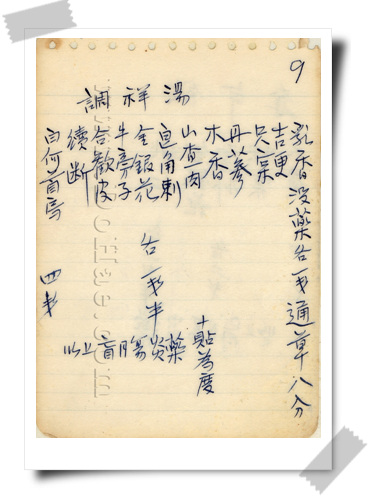 9
調祥湯
乳香沒藥各一錢通草八分
吉更
只壳
丹蔘
木香
山查肉
皀角刺
金銀花
牛旁子
合歡皮
續斷
各一錢半
白何首烏 四錢
十貼為度
以上盲腸炎藥